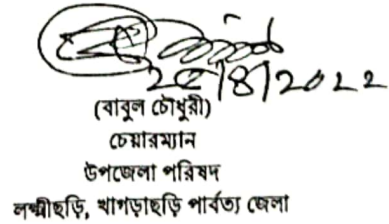 ২৫/৪/২০২২
(বাবুল চৌধুরী)
চেয়ারম্যান
উপজেলা পরিষদ
লক্ষ্মীছড়ি, খাগড়াছড়ি পার্বত্য জেলা